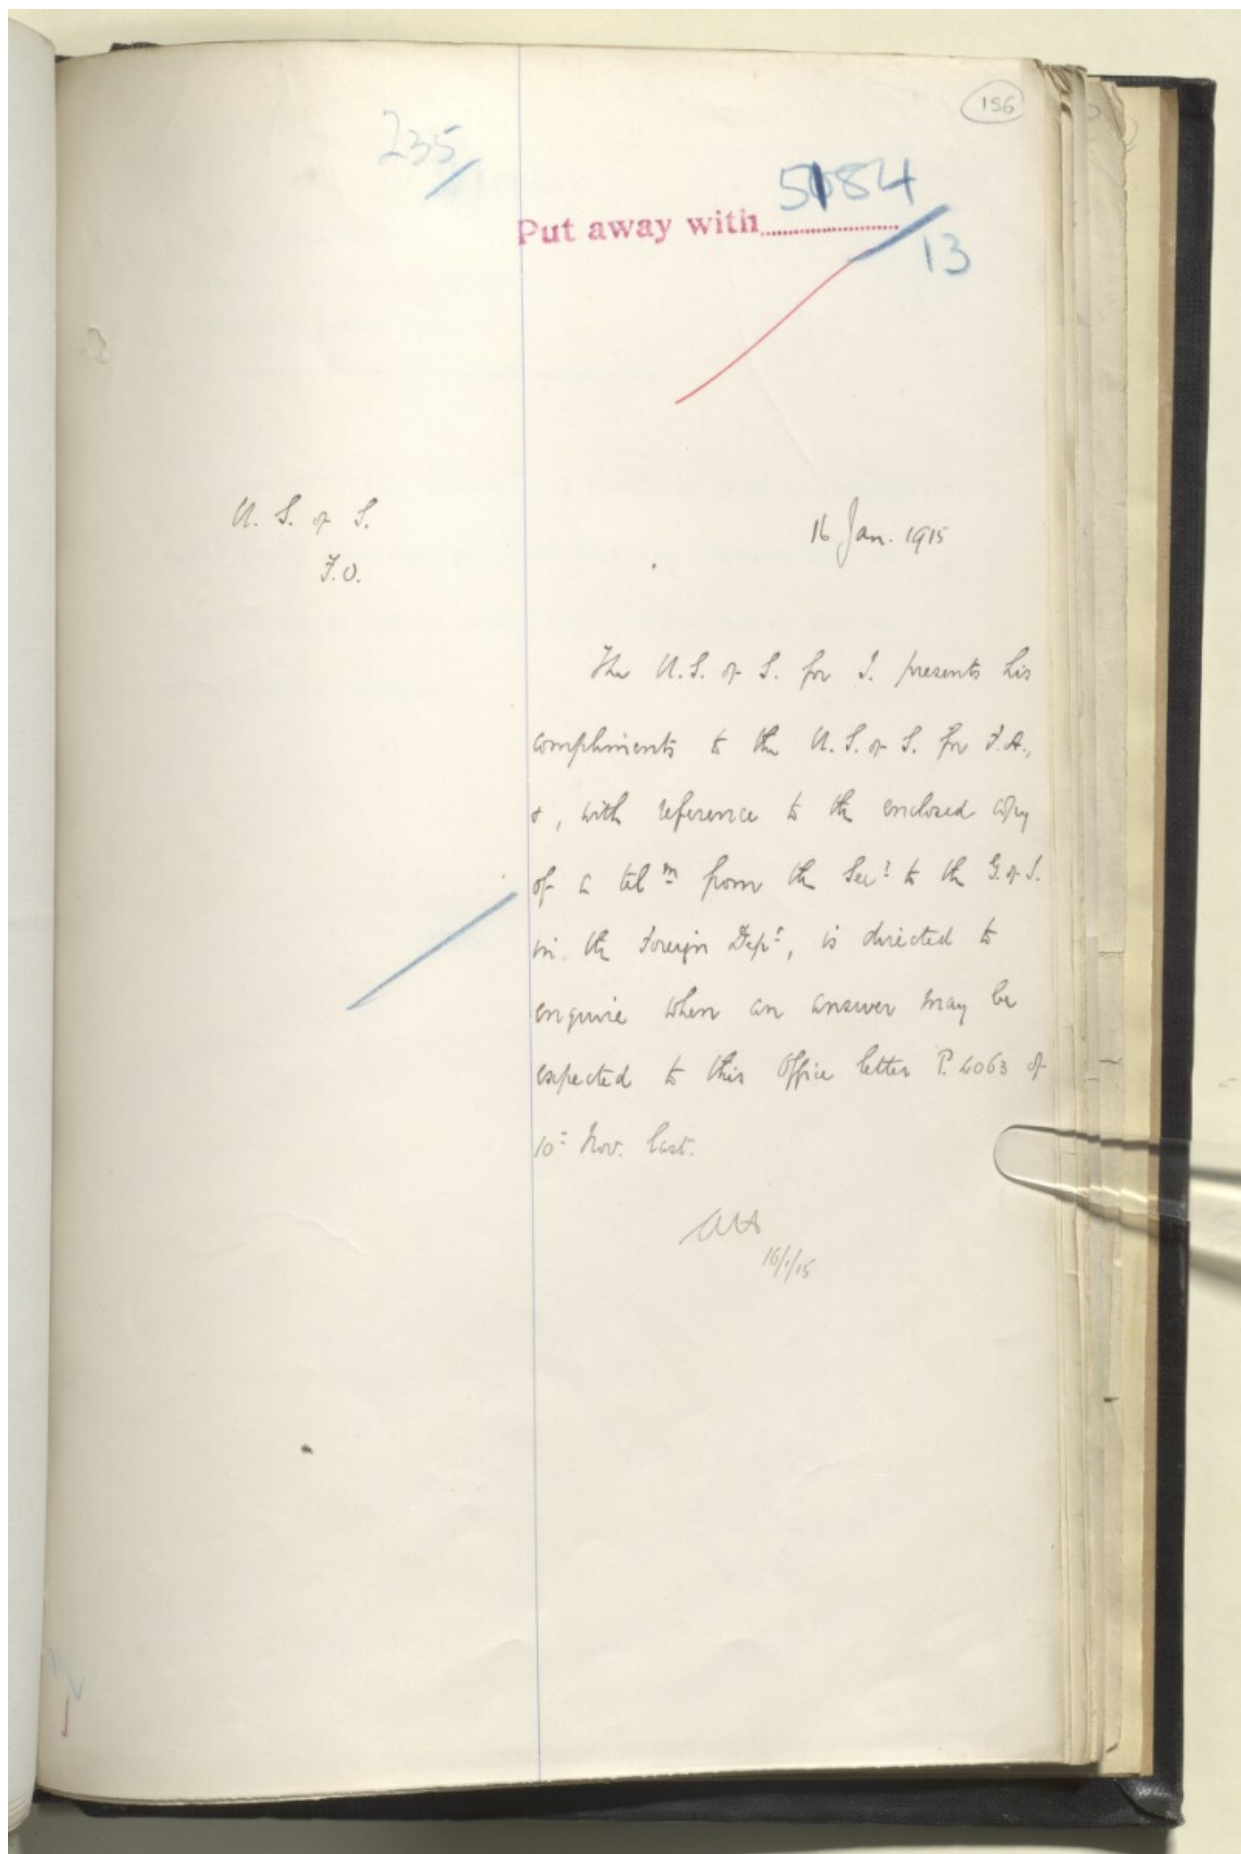 156
235/
Put away with 5184/13
U. S. of S.
F.O.
16 Jan. 1915
The U.S. of S. for I. presents his
compliments to the U.S. of S. for F.A.,
&, with reference to the enclosed copy
of a telm from the Secy to the G. of I.
in the Foreign Dept, is directed to
enquire when an answer may be
expected to this Office letter P. 4063 of
10th Nov. last.
16/1/15